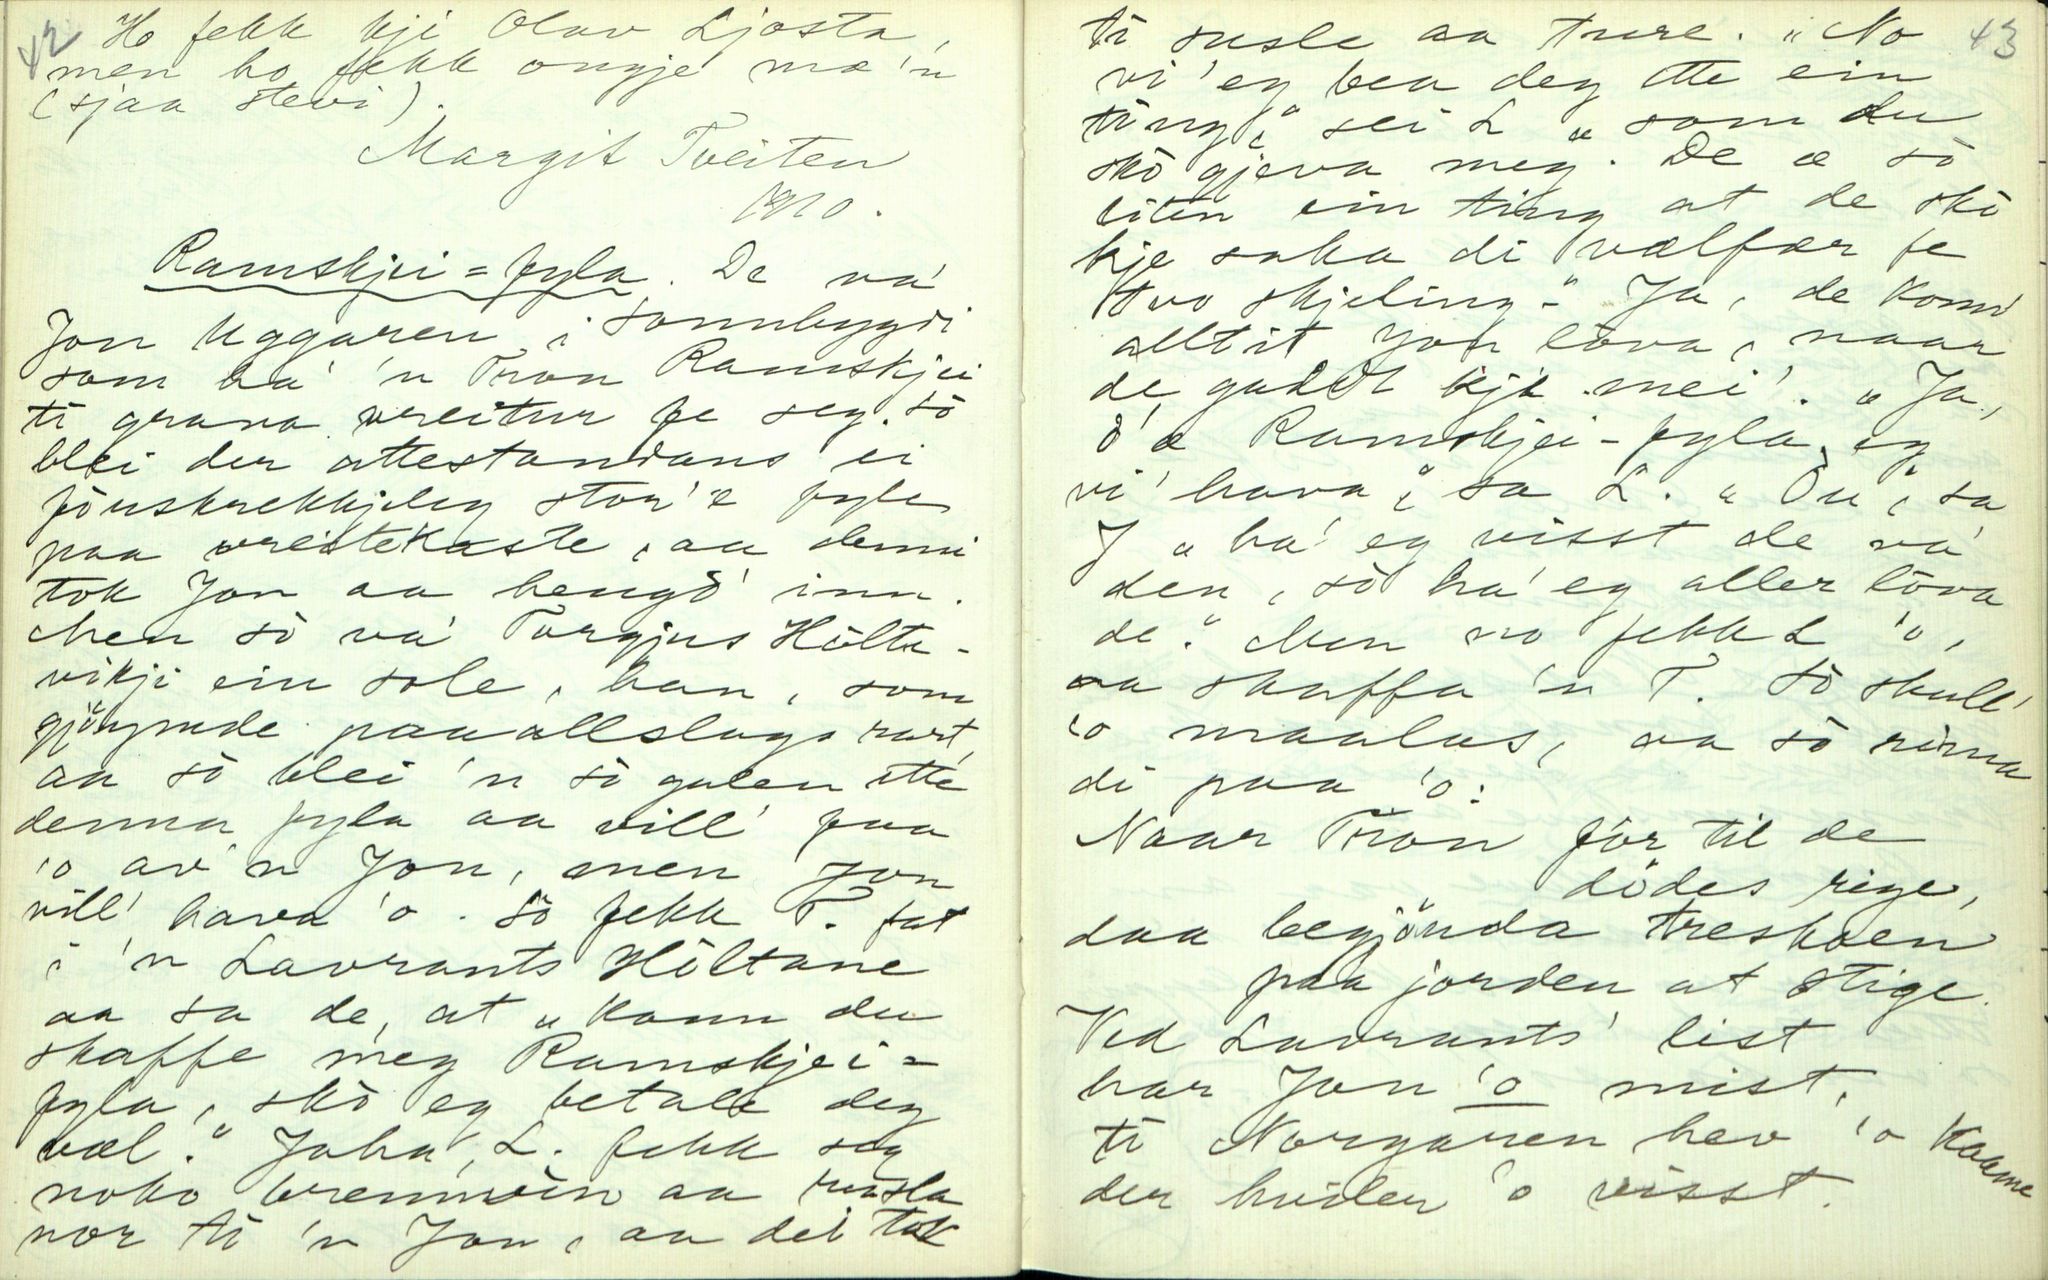 42
Ho fekk kji Olav Ljosta,
men ho fekk ongje mæ 'n
(sjaa stevi).
Margit Tveiten
1910.
Ramskjei=fyla. De va'
Jon Uggaren i Sonnbygdi
som ha' 'n Tron Ramskjei
ti grava vreitur fe seg. Sò
blei der attestandans ei
fòuskrekkjeleg stor'e fyle
paa vreitekaste, aa denni
tok Jon aa hengd' inn.
Men sò va' Torgjus Hòlta-
vikji ein sole, han, som
gjöymde paa allslags rart,
aa sò blei 'n sò galen ette
denna fyla aa vill' faa
'o av 'n Jon, men Jon
vill' hava 'o. Sò fekk T. fat
i 'n Lavrants Hòltane
aa sa de, at „kann du
skaffe meg Ramskjei=
fyla, skò eg betale deg
væl." Joha, L. fekk seg
noko brennvin aa rusla
nor ti 'n Jon, aa dei tok
43
ti susle aa ture. „No
vi' eg bea deg ette ein
ting," sei L „som du
skò gjeva meg". De æ sò
liten ein ting at de skò
kje saka di vælfær fe
tvo skjeling." Ja, de komm'
alltit Jon lòva, naar
de galdt kje mei'. „Ja,
d'æ Ramskjei-fyla eg
vi' hava," sa L. „Òu", sa
J „ha' eg visst de va'
den, sò ha' eg aller lòva
de." Men no fekk L 'o,
aa skaffa 'n T. Sò skull'
'o maalas, aa sò rima
di paa 'o:
Naar Tron fór til de
dödes rige,
daa begjönda treskoen
paa jorden at stige.
Ved Lavrants' list
har Jon 'o mist,
ti Norgaren hev 'o kaame
der hviler 'o visst.